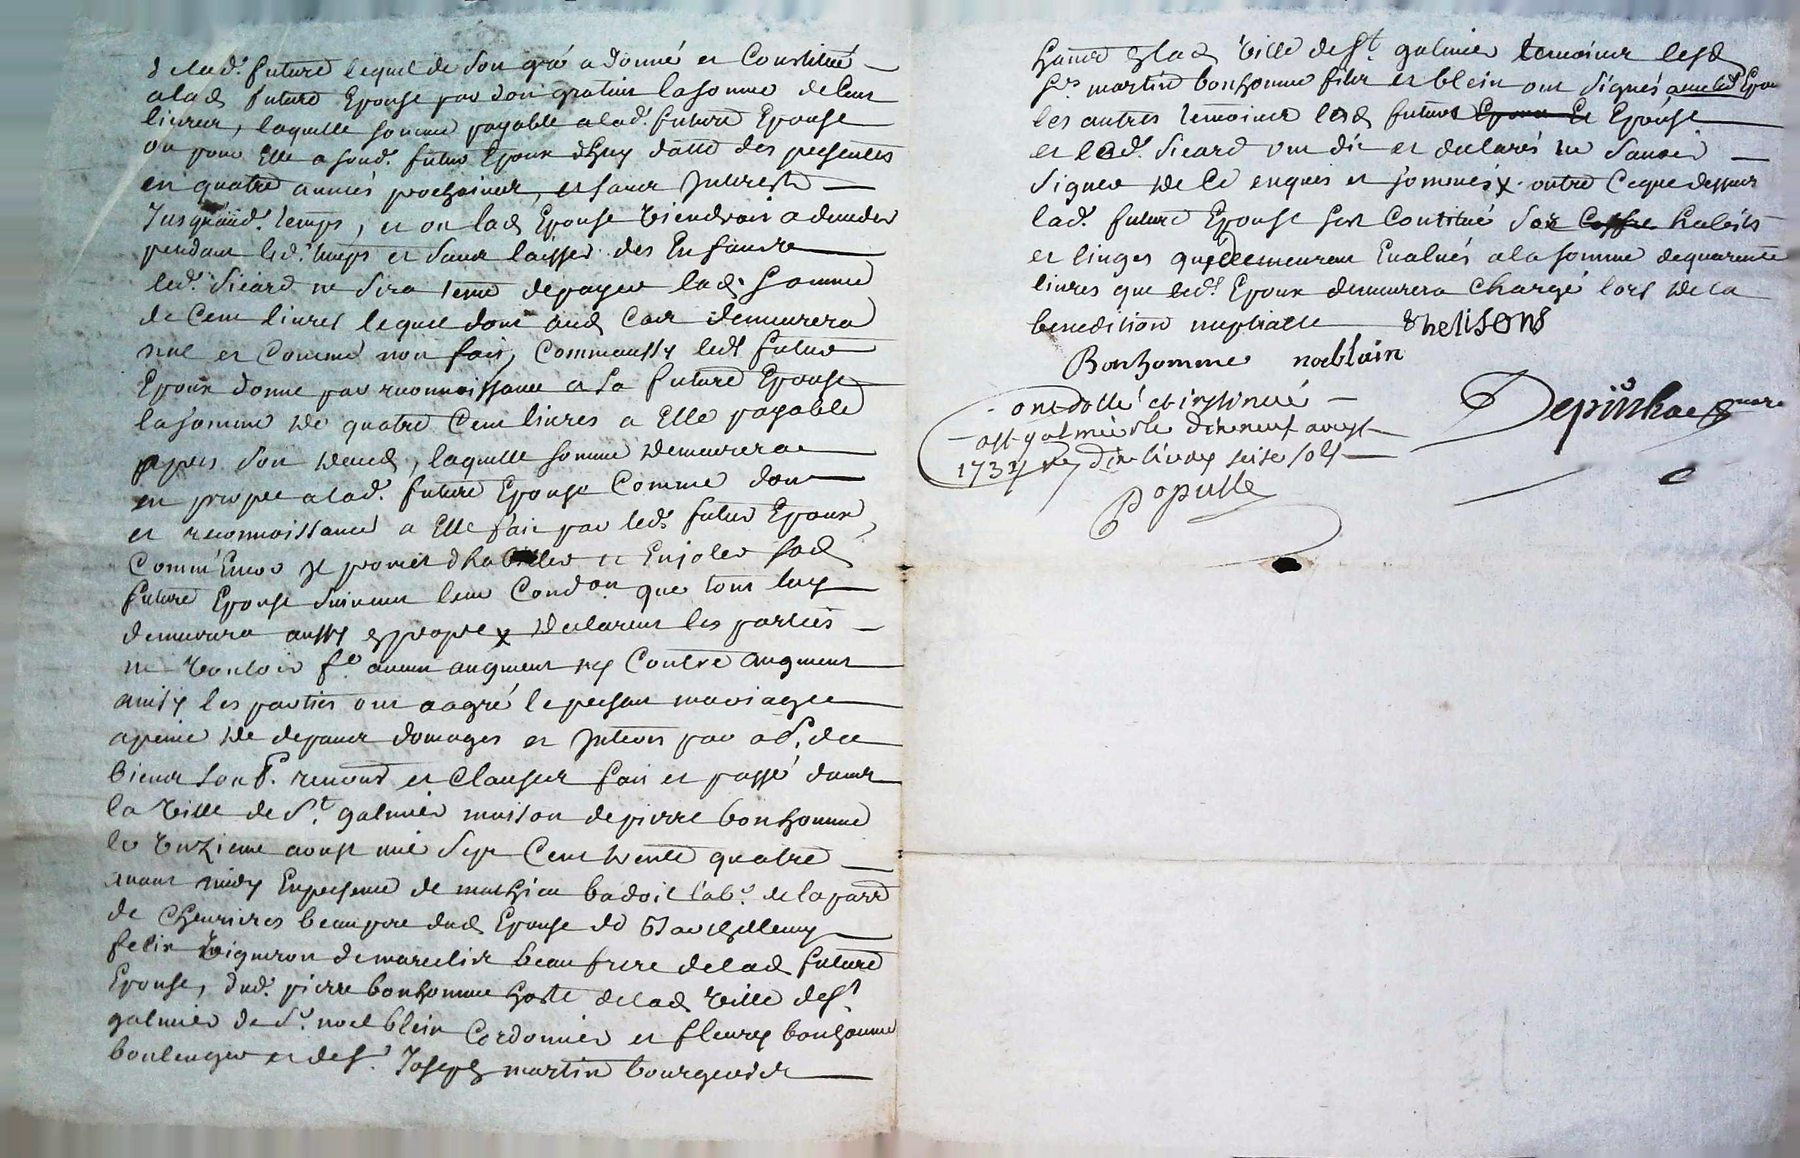 delad. future lequel de son gré a donné et Constitué
alad. future Epouse par don gratuit la somme de Cent
livres, laquelle somme payable a lad. future Epouse
ou pour Elle a sond. futur Epoux d'huy datte des presentes
en quatre années prochaines, et sans Interest
Jusqu'aud. temps, et ou lad Epouse viendroit a deceder
pendant led. temps et sans laisser des Enfants
led. Sicard ne sera tenu de payer lad. somme
de Cent livres lequel don aud Cas demeurera
nul et Comme non fait, Comm'aussy led futur
Epoux donne par reconnoissance a sa future Epouse
la somme de quatre Cent livres a Elle payable
apres son deced, laquelle somme demeurera
en propre a lad. future Epouse Comme don
et reconnoissance a Elle fait par led. futur Epoux,
Comm'Encor il promet d'habiller et Enjoler sad
future Epouse suivant leur Condon. que tout luy
demeurera aussy propre x declarent les parties
ne vouloir fe. aucun augment ny Contre augment
ainsy les parties ont aagré le present mariage
a peine de depans domages et Interets par o
biens sou renond et Clauses fait et passé dans
la ville de St. galmier maison de pierre bonhomme
le aoust mil sept Cent trente quatre
avant midy En presence de mathieu badoil lab. de la parr
de Chevrieres beaupere dud Epouse de Barthellemy
felix vigneron de marcelin beau frere de lad future
Epouse, dud. pierre bonhomme hoste de lad ville de St
galmier de Sr. noel blein Cordonnier et fleury bonhomme
boulenger et de Sr. Joseph martin bourgeois
de lad ville de St. galmier temoins lesd
Srs martin bonhomme felix et blein ont signés avec led Epou
les autres temoins lesd future Epouse
et led. Sicard ont dit et declarés ne sauoir
signer de Ce enquis et sommés x. outre Ce que dessus
lad. future Epouse s'est Constitué habits
et linges qui demeurent Evalués a la somme de quarente
livres que led. Epoux demeurera chargé lors de la
benediction nuptialle
Bonhomme noel blain
Controllé et insinué
a St galmier le dix neuf aoust
1734 dix livres seise sols
Populle